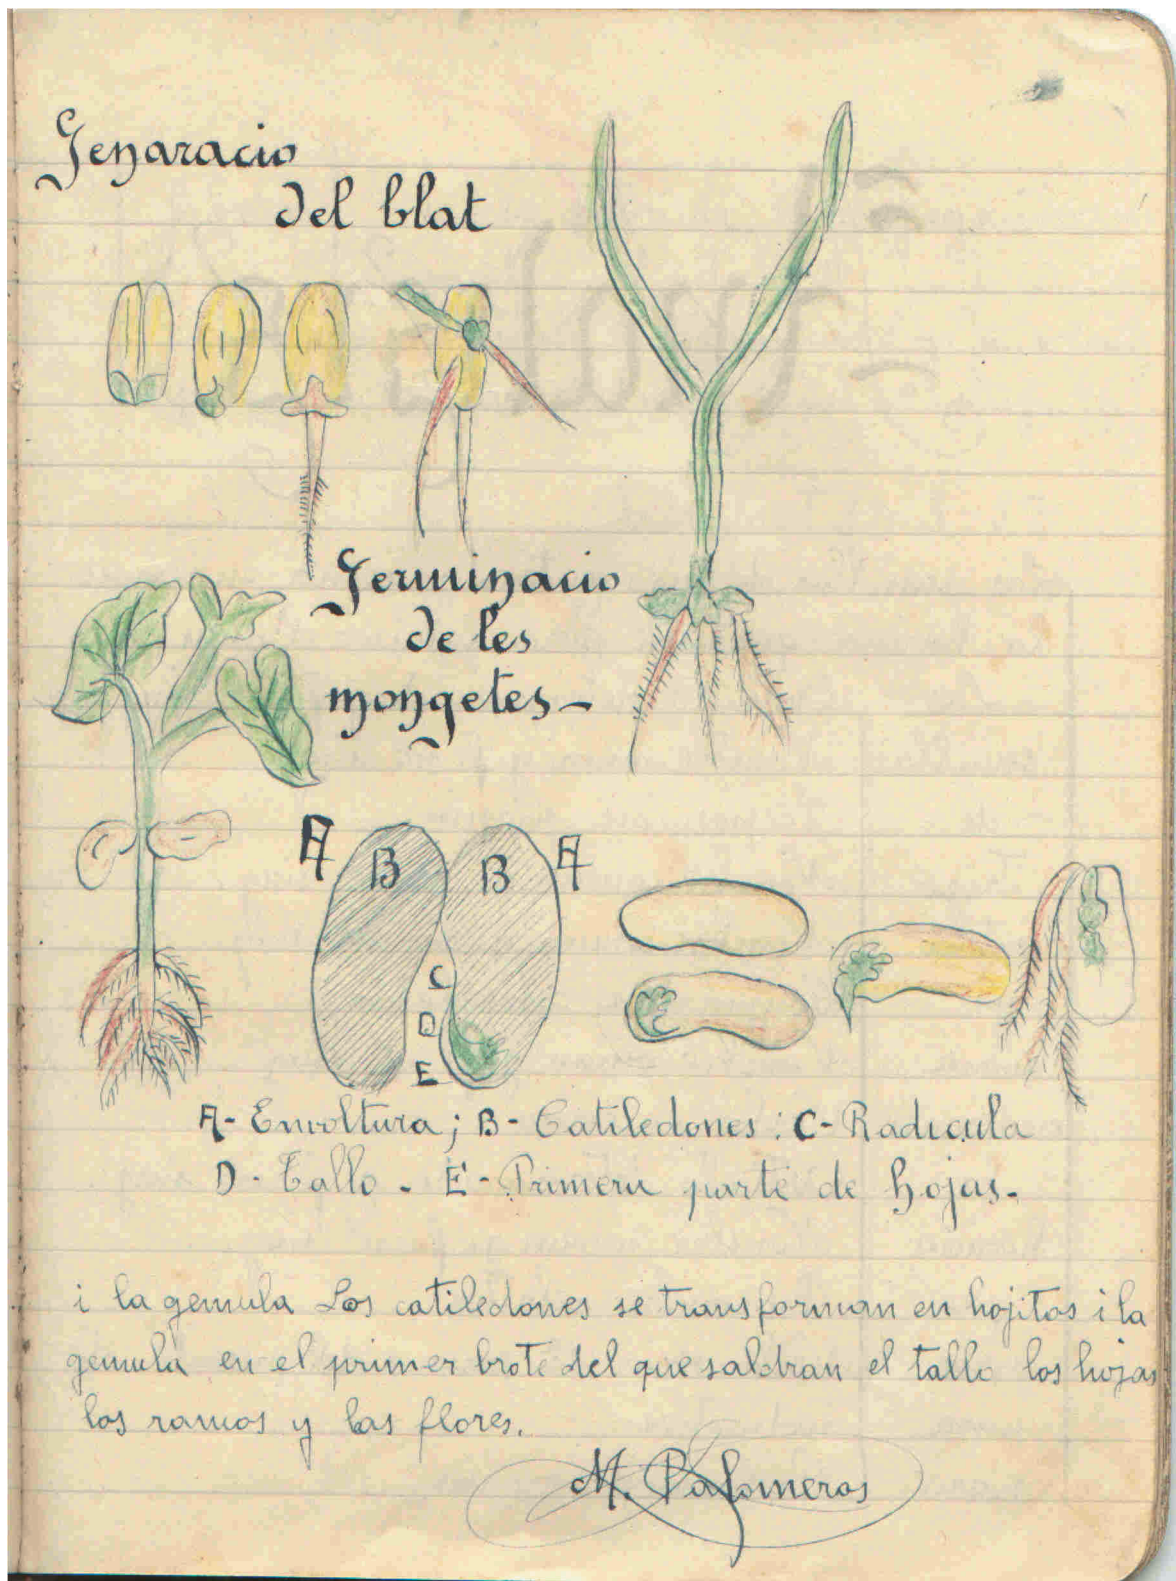 Genaracio
del blat
Germinacio
de les
mongetes-
A
B
B
A
C
D
E
A- Envoltura; B- Catiledones: C- Radicula
D- Tallo - E- Primera parte de hojas.
i la gemula Los catiledones se transforman en hojitas i la
gemula en el primer brote del que saldran el tallo las hojas
los ramos y las flores.
M. Palomeros